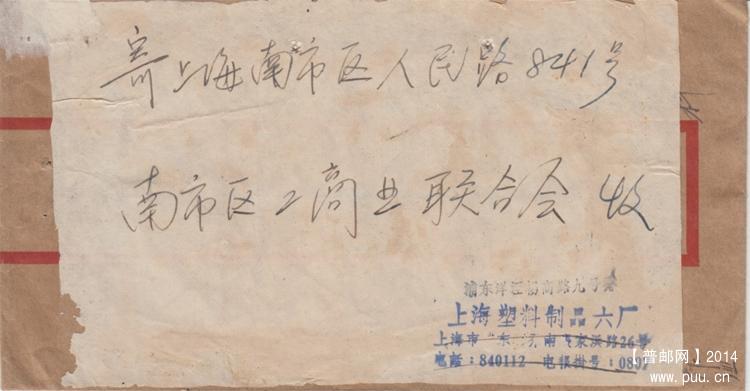 寄上海南市区人民路841号
南市区工商业联合会 收
浦东洋泾杨高路九号桥
上海塑料制品六厂
上海市 东 南 家浜路26号
电话:840112 电报挂号:089
【普邮网】2014
www.puu.cn